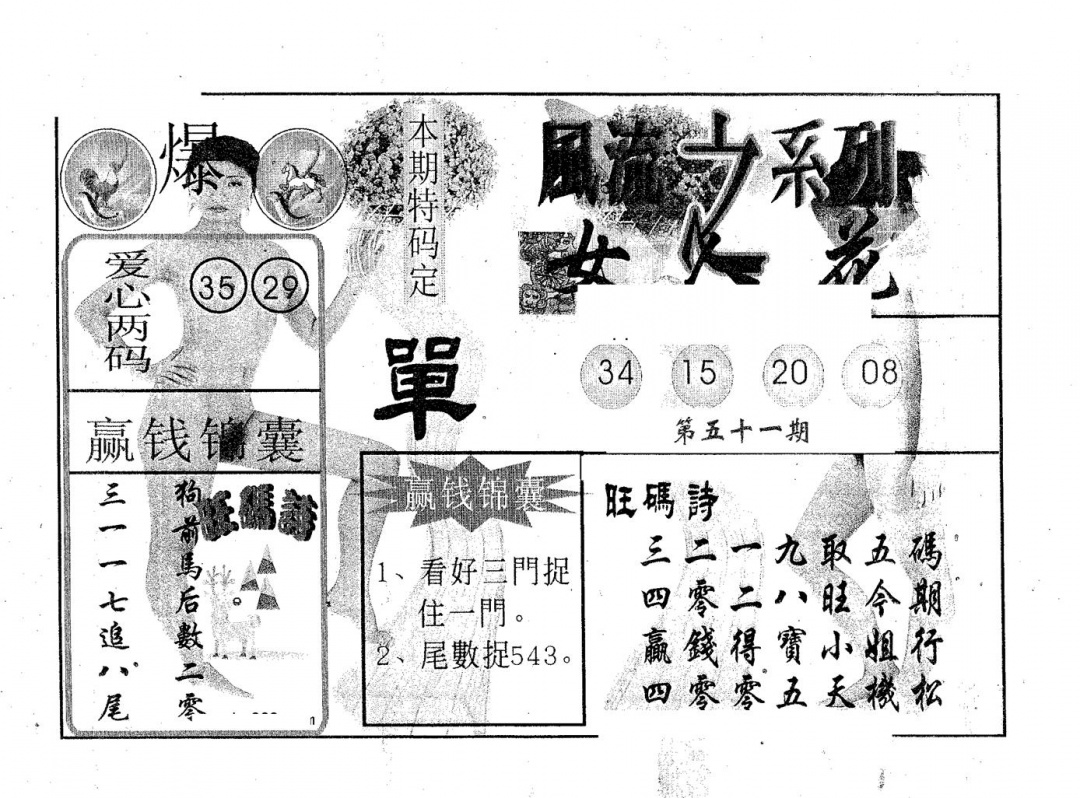 爆
爱心两码
35 29
赢钱锦囊
旺碼詩
狗前馬后數二零
三一一七追八尾
本期特码定
單
赢钱锦囊
1、看好三門捉
住一門。
2、尾數捉543。
風流之系列
女人花
34 15 20 08
第五十一期
旺碼詩
三二一九取五碼
四零二八旺今期
赢錢得寶小姐行
四零零五天機松